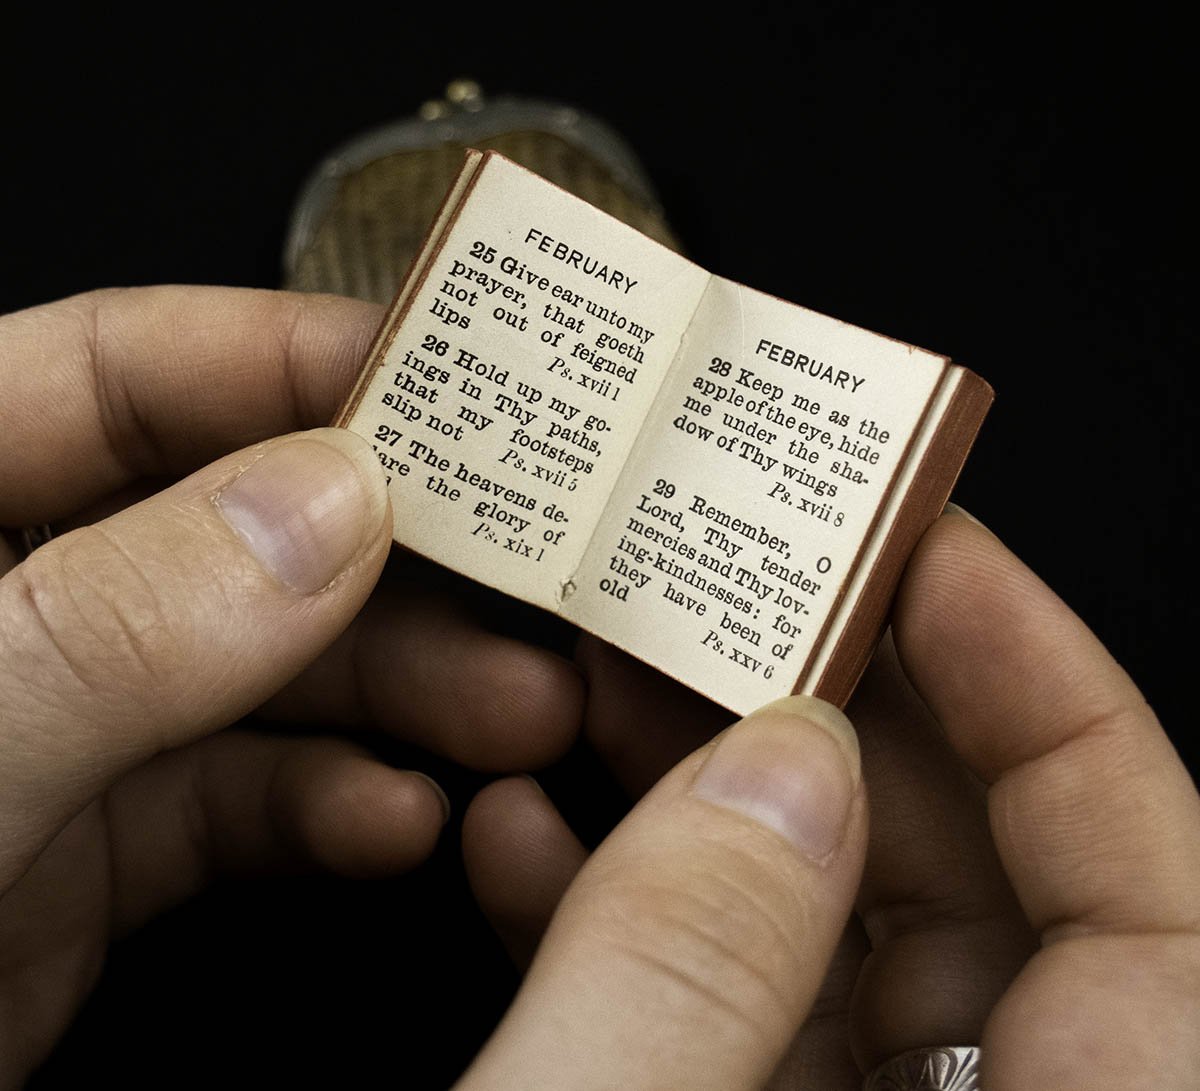 FEBRUARY
25 Give ear unto my
prayer, that goeth
not out of feigned
lips
Ps. xvii 1
26 Hold up my go-
ings in Thy paths,
that my footsteps
slip not
Ps. xvii 5
27 The heavens de-
are the glory of
Ps. xix 1
FEBRUARY
28 Keep me as the
apple of the eye, hide
me under the sha-
dow of Thy wings
Ps. xvii 8
29 Remember, O
Lord, Thy tender
mercies and Thy lov-
ing-kindnesses: for
they have been of
old
Ps. xxv 6